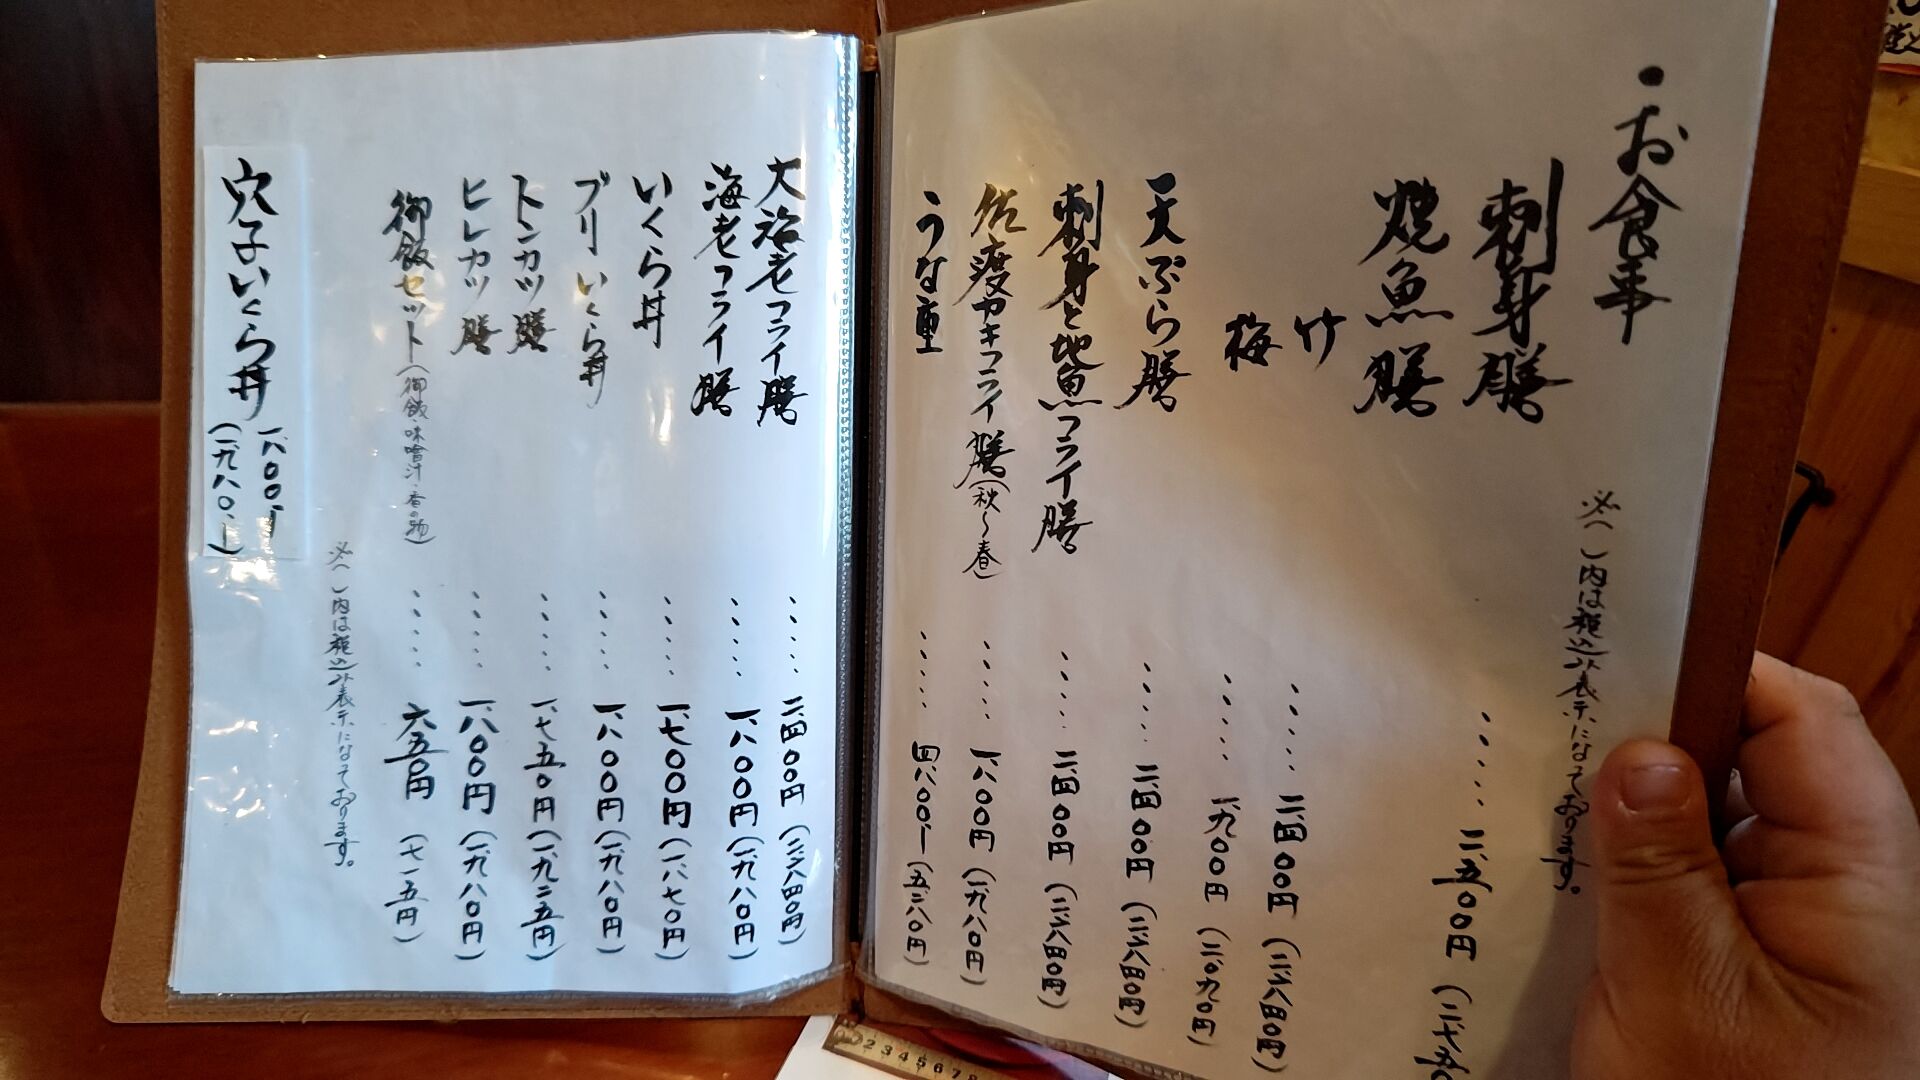 ・お食事
※( )内は税込み表示になっております。
刺身膳 ・・・・・ 二、五〇〇円
焼魚膳
竹 ・・・・・ 二、四〇〇円(二、六四〇円)
梅 ・・・・・ 一、九〇〇円(二、〇九〇円)
天ぷら膳 ・・・・・ 二、四〇〇円(二、六四〇円)
刺身と地魚フライ膳 ・・・・・ 二、四〇〇円(二、六四〇円)
佐渡カキフライ膳(秋〜春) ・・・・・ 一、八〇〇円(一、九八〇円)
うな重 ・・・・・ 四、八〇〇、ー(五、二八〇円)
大海老フライ膳 ・・・・・ 二、四〇〇円(二、六四〇円)
海老フライ膳 ・・・・・ 一、八〇〇円(一、九八〇円)
いくら丼 ・・・・・ 一、七〇〇円(一、八七〇円)
ブリいくら丼 ・・・・・ 一、八〇〇円(一、九八〇円)
トンカツ膳 ・・・・・ 一、七五〇円(一、九二五円)
ヒレカツ膳 ・・・・・ 一、八〇〇円(一、九八〇円)
御飯セット(御飯・味噌汁・香の物) ・・・・・ 六五〇円(七一五円)
※( )内は税込み表示になっております。
穴子いくら丼 一、八〇〇、ー
(一、九八〇、ー)
2 3 4 5 6 7 8